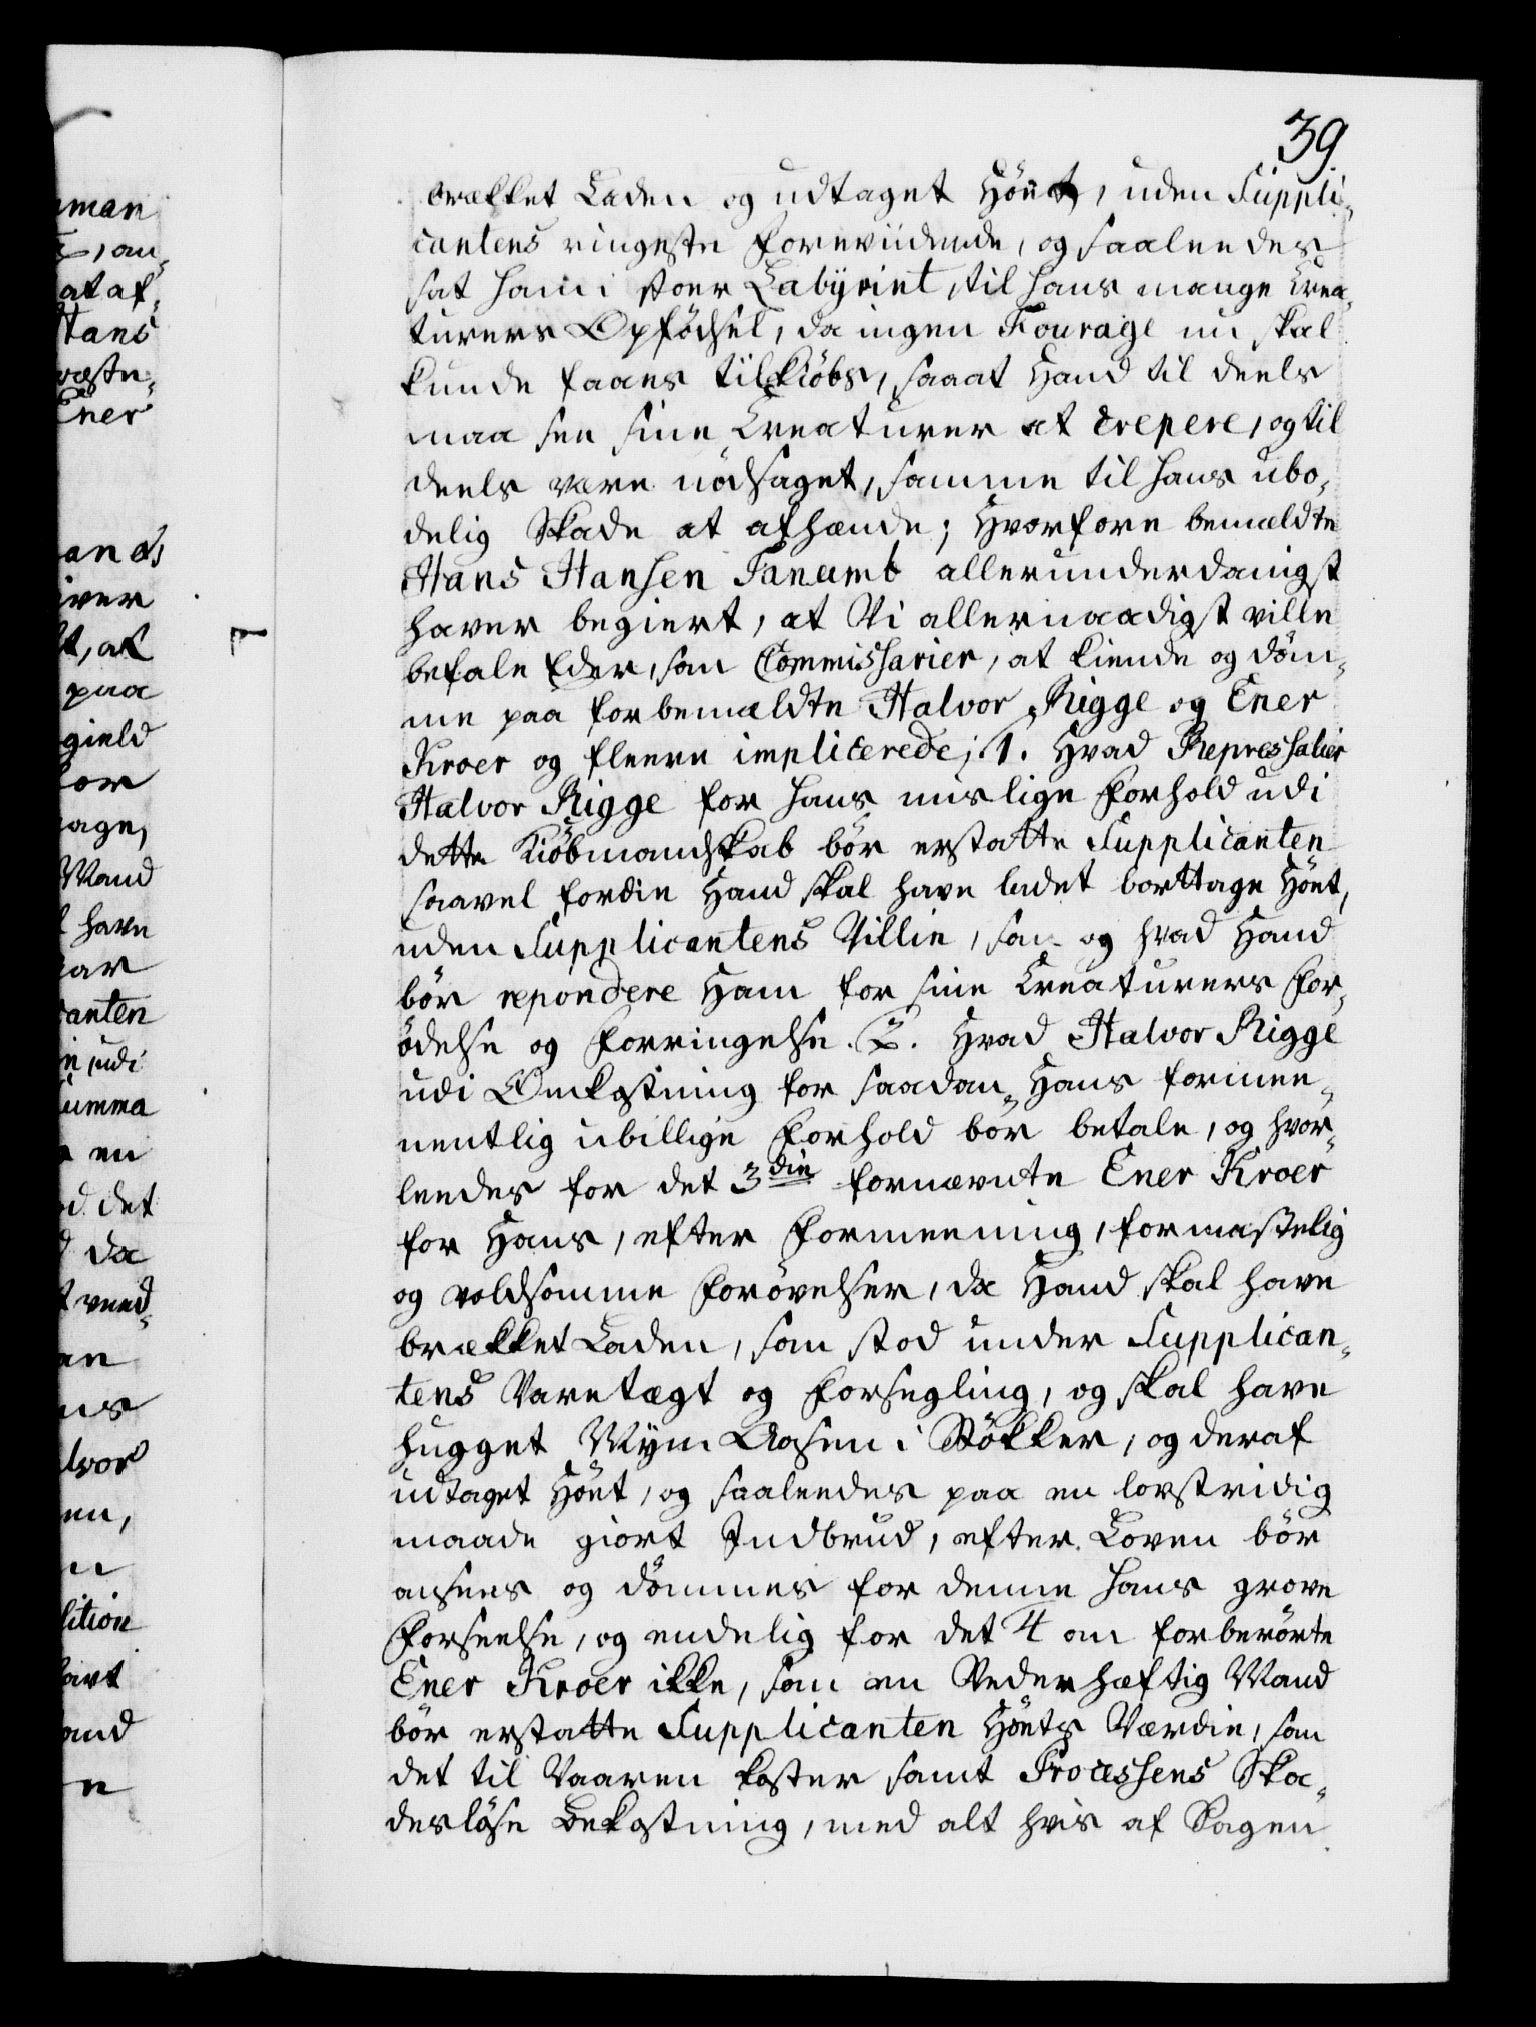 39.
brækket Laden og udtaget Höet, uden Suppli-
cantens ringeste Foreviidende, og saaleedes
sat ham i stoer Labyrint, til hans mange Crea-
turers Opfödsel, da ingen Fourage nu skal
kunde faaes til Kiöbs, saa at Hand til deels
maa see sine Creaturer at crepere, og til
deels være nödsaget, samme til hans ubo-
delig Skade at afhænde; Hvorfore bemældte
Hans Hansen Tanumb allerunderdanigst
haver begiert, at Vi allernaadigst ville
befale Eder, som Commissarier, at kiende og döm-
me paa forbemældte Halvor Rigge og Ener
Kroer og fleere implicerede; 1. Hvad Repressalier
Halvor Rigge for hans mislige Forhold udi
dette Kiöbmandskab bör erstatte Supplicanten
saavel fordie Hand skal have ladet borttage Höet,
uden Supplicantens Villie, som og hvad Hand
bör repondere Ham for sine Creaturers For-
ödelse og Forringelse. 2. Hvad Halvor Rigge
udi Omkostning for saadan Hans formee-
nentlig ubillige Forhold bör betale, og hvor-
leedes for det 3die fornævnte Ener Kroer
for Hans, efter Formeening, formastelig
og voldsomme Forövelser, da Hand skal have
brækket Laden, som stod under Supplican-
tens Varetægt og Forsegling, og skal have
hugget Mÿm Aasen i Stökker, og deraf
udtaget Höet, og saaleedes paa en lovstridig
maade giort Indbrud, efter Loven bör
ansees og dömmes for denne hans grove
Forseelse, og endelig for det 4 om forberörte
Ener Kroer ikke, som en Vederhæftig Mand
bör erstatte Supplicanten Höets Værdie, som
det til Vaaren koster samt Processens Ska-
deslöse Bekostning, med alt hvis af Sagen